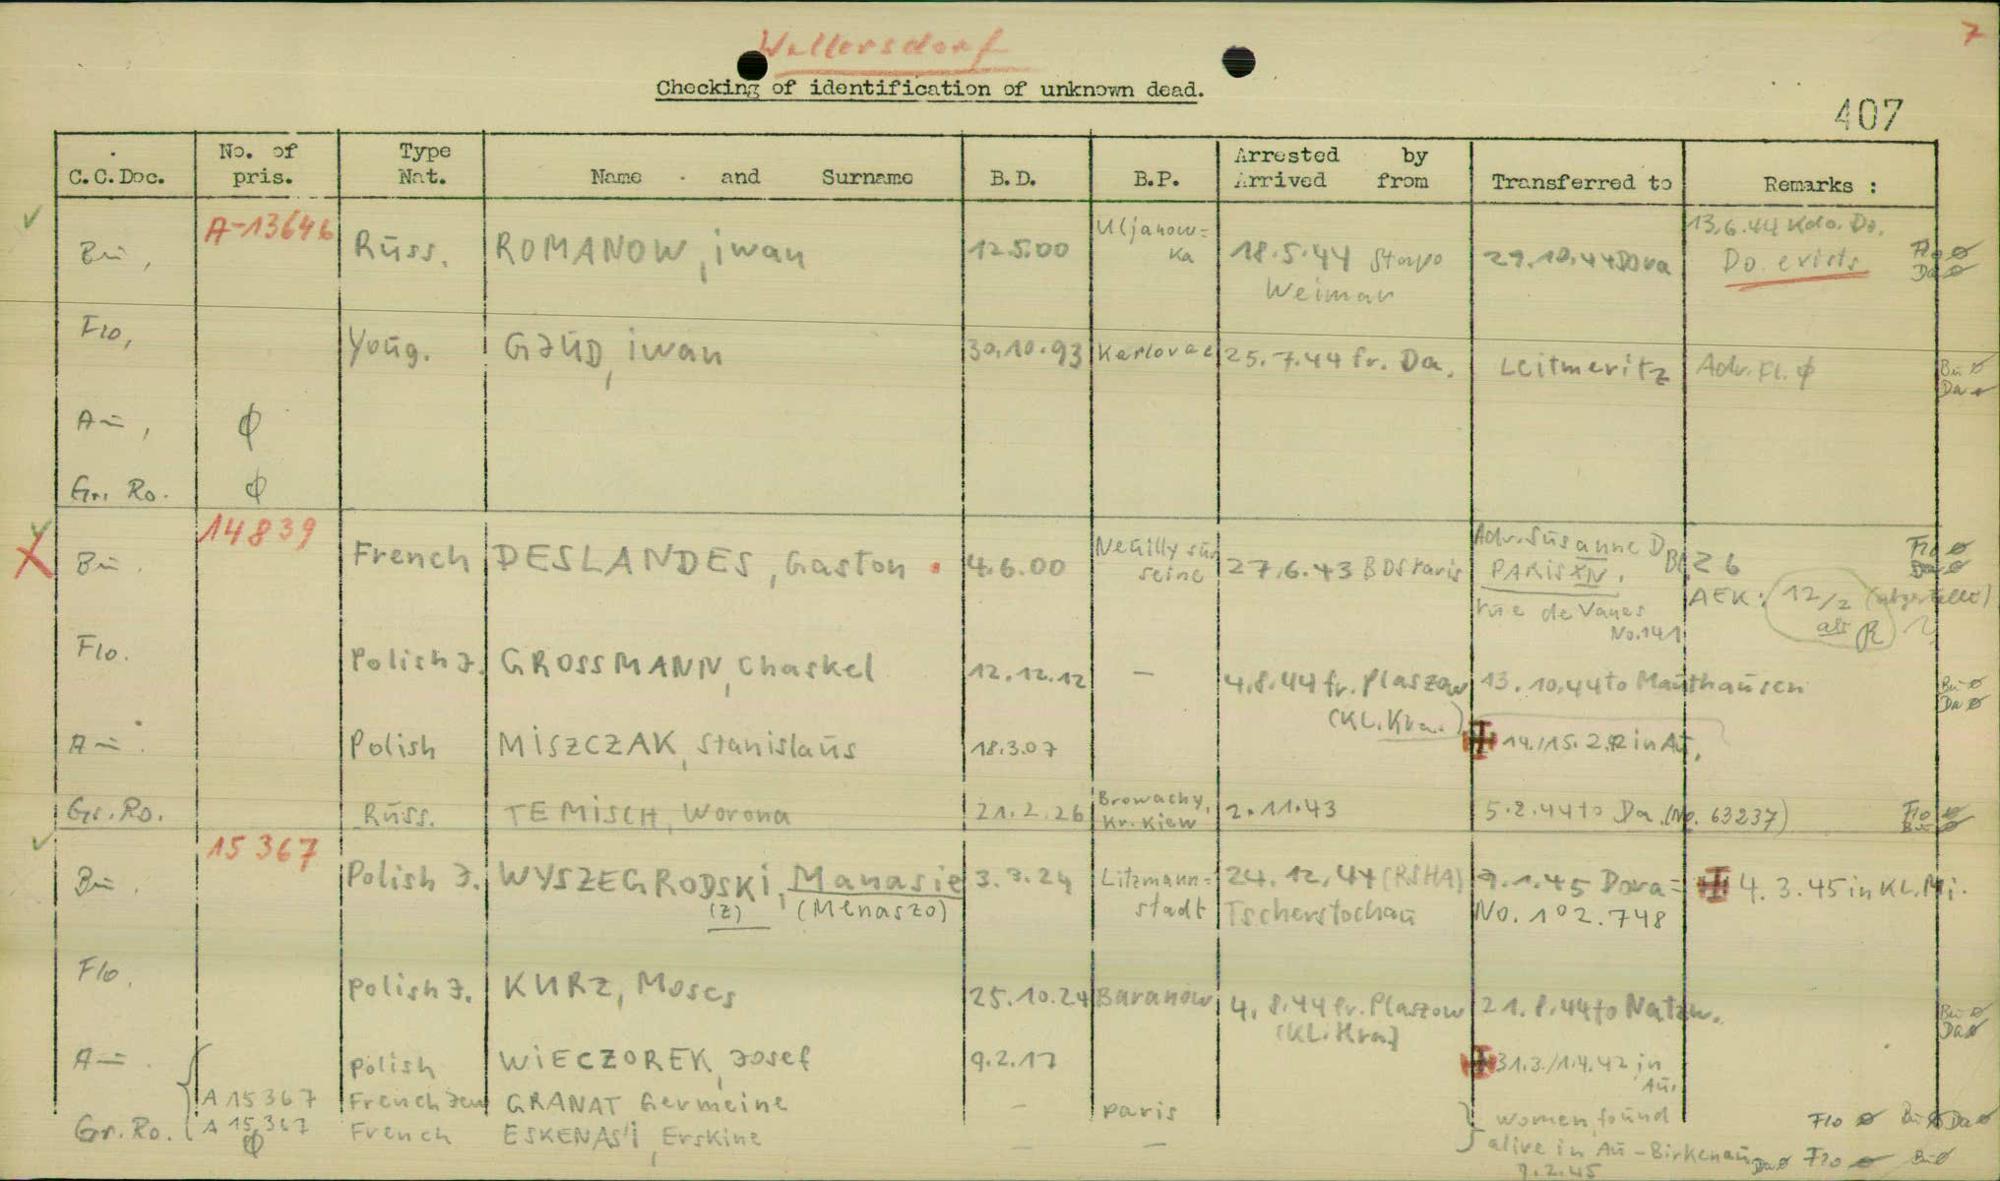 7
Wellersdorf
Checking of identification of unknown dead.
407
C.C.Doc. No. of pris. Type Nat. Name and Surname B.D. B.P. Arrested by Arrived from Transferred to Remarks :
A-13646
Bū, Rūss. ROMANOW, iwan 12.5.00 Uljanow=ka 18.5.44 Stapo Weimar 29.10.44 Dora 13.6.44 Kdo. Do. Do. exists Flo ø Da ø
Flo, Yoūg. GJŪD, iwan 30.10.93 Karlovac 25.7.44 fr. Da. Leitmeritz Adr. Fl. ø Bū ø Da ø
Aū, ø
Gr. Ro. ø
14839
Bū. French DESLANDES, Gaston 4.6.00 Neuilly sūr seine 27.6.43 BDS Paris Adr. Sūsanne D. PARIS XIV, rūe de Vanes No.141 Bl. 26 AEK: 12/2 als R Flo ø Da ø
Flo. Polish J. GROSSMANN, Chaskel 12.12.12 — 4.8.44 fr. Plaszow (KL. Kra.) 13.10.44 to Maūthaūsen Bū ø Da ø
Aū. Polish MISZCZAK, Stanislaūs 18.3.07 14./15.2.42 in Aū.
Gr. Ro. Rūss. TEMISCH, Worona 21.2.26 Browachy, Kr. Kiew 2.11.43 5.2.44 to Da. (No. 63237) Flo ø Bū ø
15367
Bū. Polish J. WYSZEGRODSKI, Manasie 3.3.24 Litzmann=stadt 24.12.44 (RSHA) Tscherstochaū 9.1.45 Dora= No. 102.748 4.3.45 in KL. Mi.
(Z) (Menaszo)
Flo. Polish J. KURZ, Moses 25.10.24 Baranow 4.8.44 fr. Plaszow (KL. Kra) 21.8.44 to Natzw. Bū ø Da ø
Aū. Polish WIECZOREK, Josef 9.2.17 31.3./1.4.42 in Aū.
A 15367 French Jew GRANAT Germeine — Paris } women found Flo ø Bū ø Da ø
Gr. Ro. A 15367 ø French ESKENASI, Erskine — — alive in Aū-Birkenaū Da ø Flo ø Bū ø
9.2.45